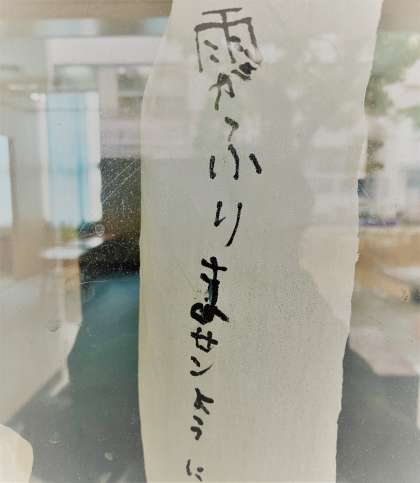 雨がふりませんように